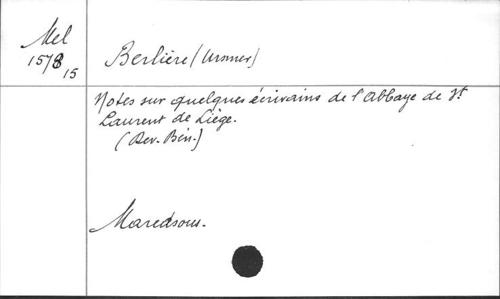 Mel
1578
15
Berlière (Ursmer)
Notes sur quelques écrivains de l'Abbaye de St
Laurent de Liège.
(Rev. Bén.)
Maredsous.